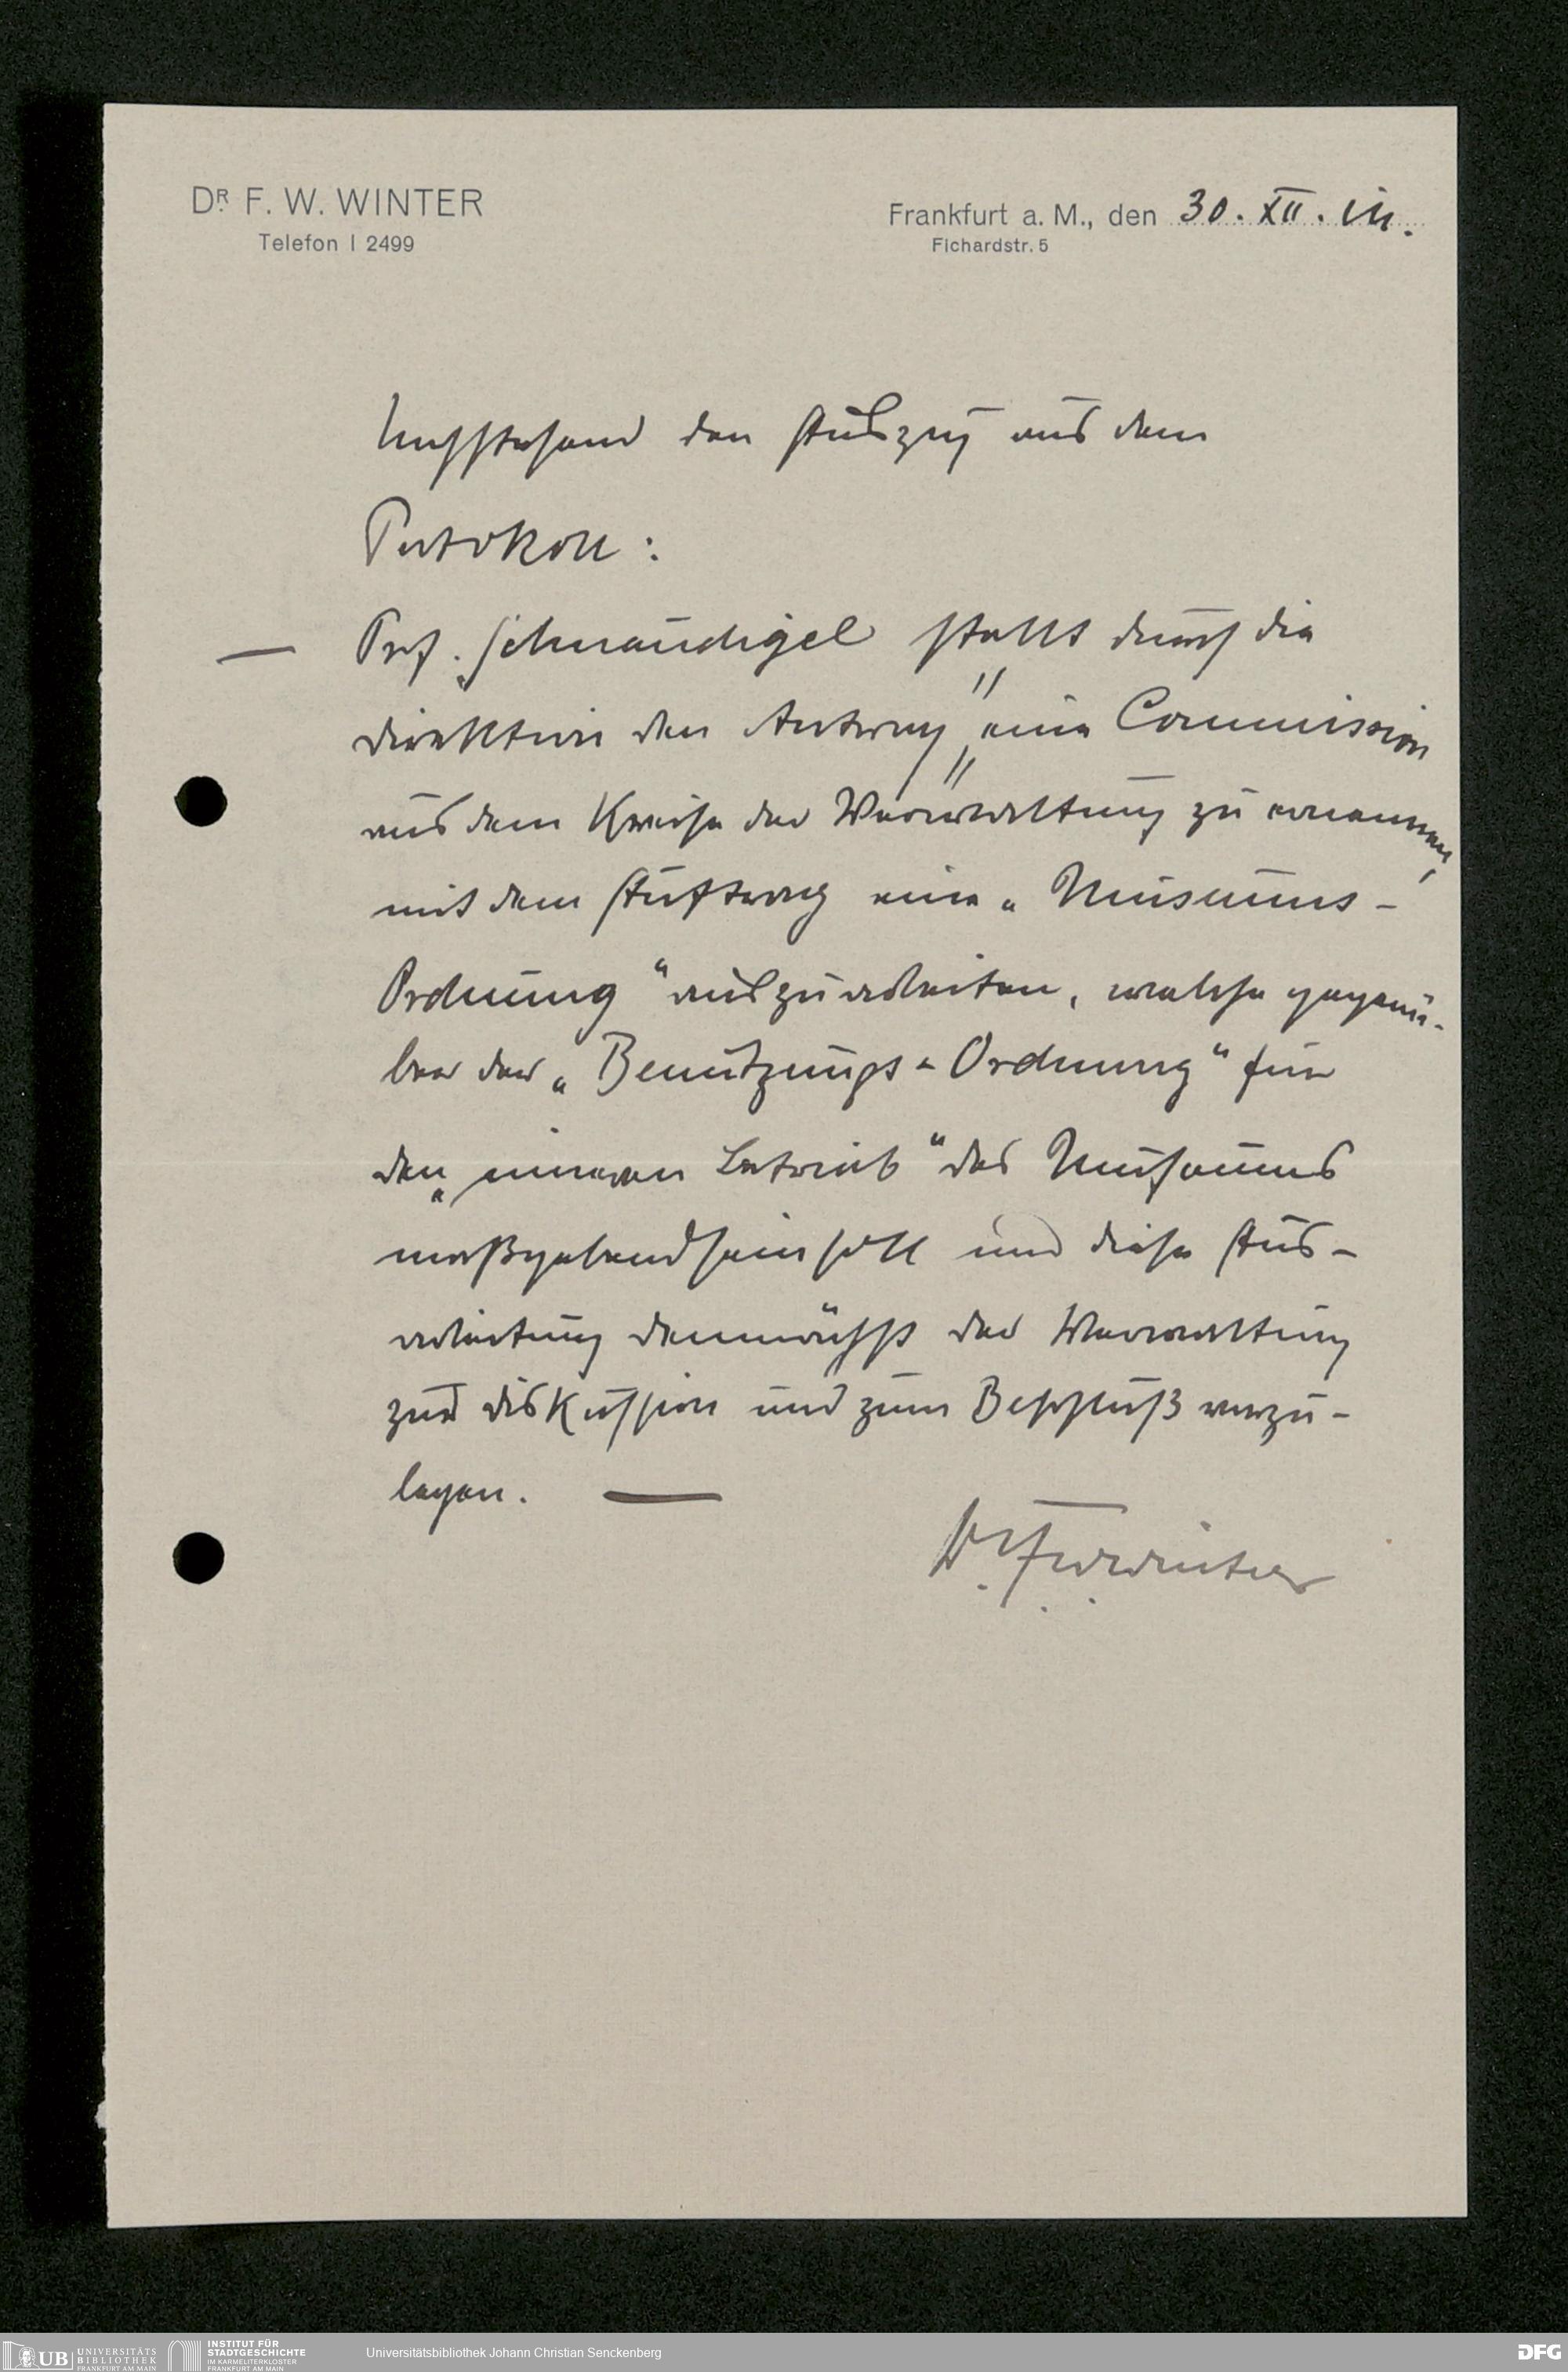 DR. F. W. WINTER
Telefon I 2499
Frankfurt a. M., den 30. XII.
Fichardstr. 5
Nachstehend den Auszug aus dem
Protokoll:
Prof. Schnaudigel stellt durch die
Direktion den Antrag, eine Commission
aus dem Kreise der Verwaltung zu ernennen,
mit dem Auftrag eine „Museums-
Ordnung“ auszuarbeiten, welche gegenü-
ber der „Benützungs-Ordnung“ für
den „inneren Betrieb“ des Museums
maßgebend sein soll und diese Aus-
arbeitung demnächst der Verwaltung
zur Diskussion und zum Beschluß vorzu-
legen. —
Dr. F. W. Winter
UB UNIVERSITÄTS
BIBLIOTHEK
FRANKFURT AM MAIN
INSTITUT FÜR
STADTGESCHICHTE
IM KARMELITERKLOSTER
FRANKFURT AM MAIN
Universitätsbibliothek Johann Christian Senckenberg
DFG